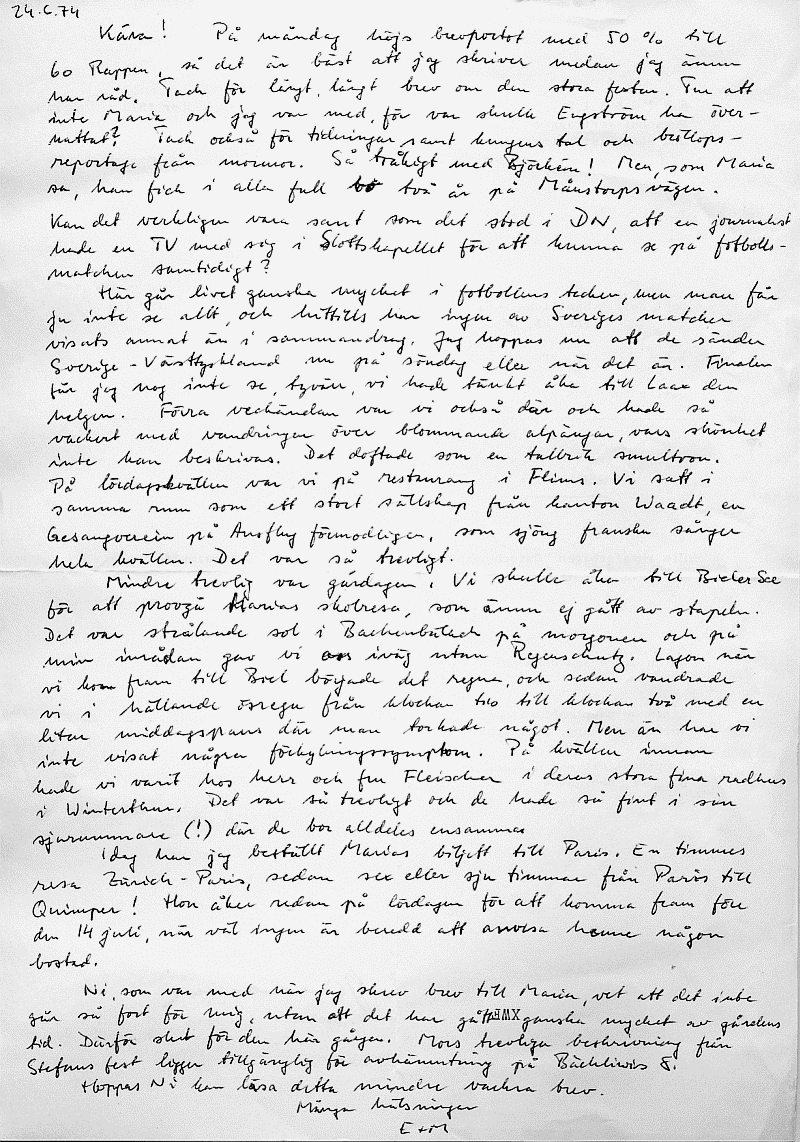 24.6.74
Kära! På måndag höjs brevportot med 50 % till
60 Rappen, så det är bäst att jag skriver medan jag ännu
har råd. Tack för långt, långt brev om den stora festen. Tur att
inte Maria och jag var med, för var skulle Engström ha över-
nattat? Tack också för tidningar samt kungens tal och bröllops-
reportage från mormor. Så tråkigt med Björhem! Men, som Maria
sa, han fick i alla fall bo två år på Månstorpsvägen.
Kan det verkligen vara sant som det stod i DN, att en journalist
hade en TV med sig i Slottskapellet för att kunna se på fotbolls-
matchen samtidigt?
Här går livet ganska mycket i fotbollens tecken, men man får
ju inte se allt, och hittills har ingen av Sveriges matcher
visats annat än i sammandrag. Jag hoppas nu att de sänder
Sverige - Västtyskland nu på söndag eller när det är. Finalen
får jag nog inte se, tyvärr, vi hade tänkt åka till Laax den
helgen. Förra veckändan var vi också där och hade så
vackert med vandringar över blommande alpängar, vars skönhet
inte kan beskrivas. Det doftade som en tallrik smultron.
På lördagskvällen var vi på restaurang i Flims. Vi satt i
samma rum som ett stort sällskap från kanton Waadt, en
Gesangverein på Ausflug förmodligen, som sjöng franska sånger
hela kvällen. Det var så trevligt.
Mindre trevlig var gårdagen. Vi skulle åka till Bieler See
för att provgå Marias skolresa, som ännu ej gått av stapeln.
Det var strålande sol i Bachenbülach på morgonen och på
min inrådan gav vi oss iväg utan Regenschutz. Lagom när
vi kom fram till Biel började det regna, och sedan vandrade
vi i hällande ösregn från klockan tio till klockan två med en
liten middagspaus där man torkade något. Men än har vi
inte visat några förkylningssymptom. På kvällen innan
hade vi varit hos herr och fru Fleischer i deras stora fina radhus
i Winterthur. Det var så trevligt och de hade så fint i sin
sjurummare (!) där de bor alldeles ensamma
Idag har jag beställt Marias biljett till Paris. En timmes
resa Zürich - Paris, sedan sex eller sju timmar från Paris till
Quimper! Hon åker redan på lördagen för att komma fram före
den 14 juli, när väl ingen är beredd att anvisa henne någon
bostad.
Ni, som var med när jag skrev brev till Maria, vet att det inte
går så fort för mig, utan att det har gått ganska mycket av gårdens
tid. Därför slut för den här gången. Mors trevliga beskrivning från
Stefans fest ligger tillgänglig för avhämtning på Bächliwis 8.
Hoppas Ni kan läsa detta mindre vackra brev.
Många hälsningar
E+M